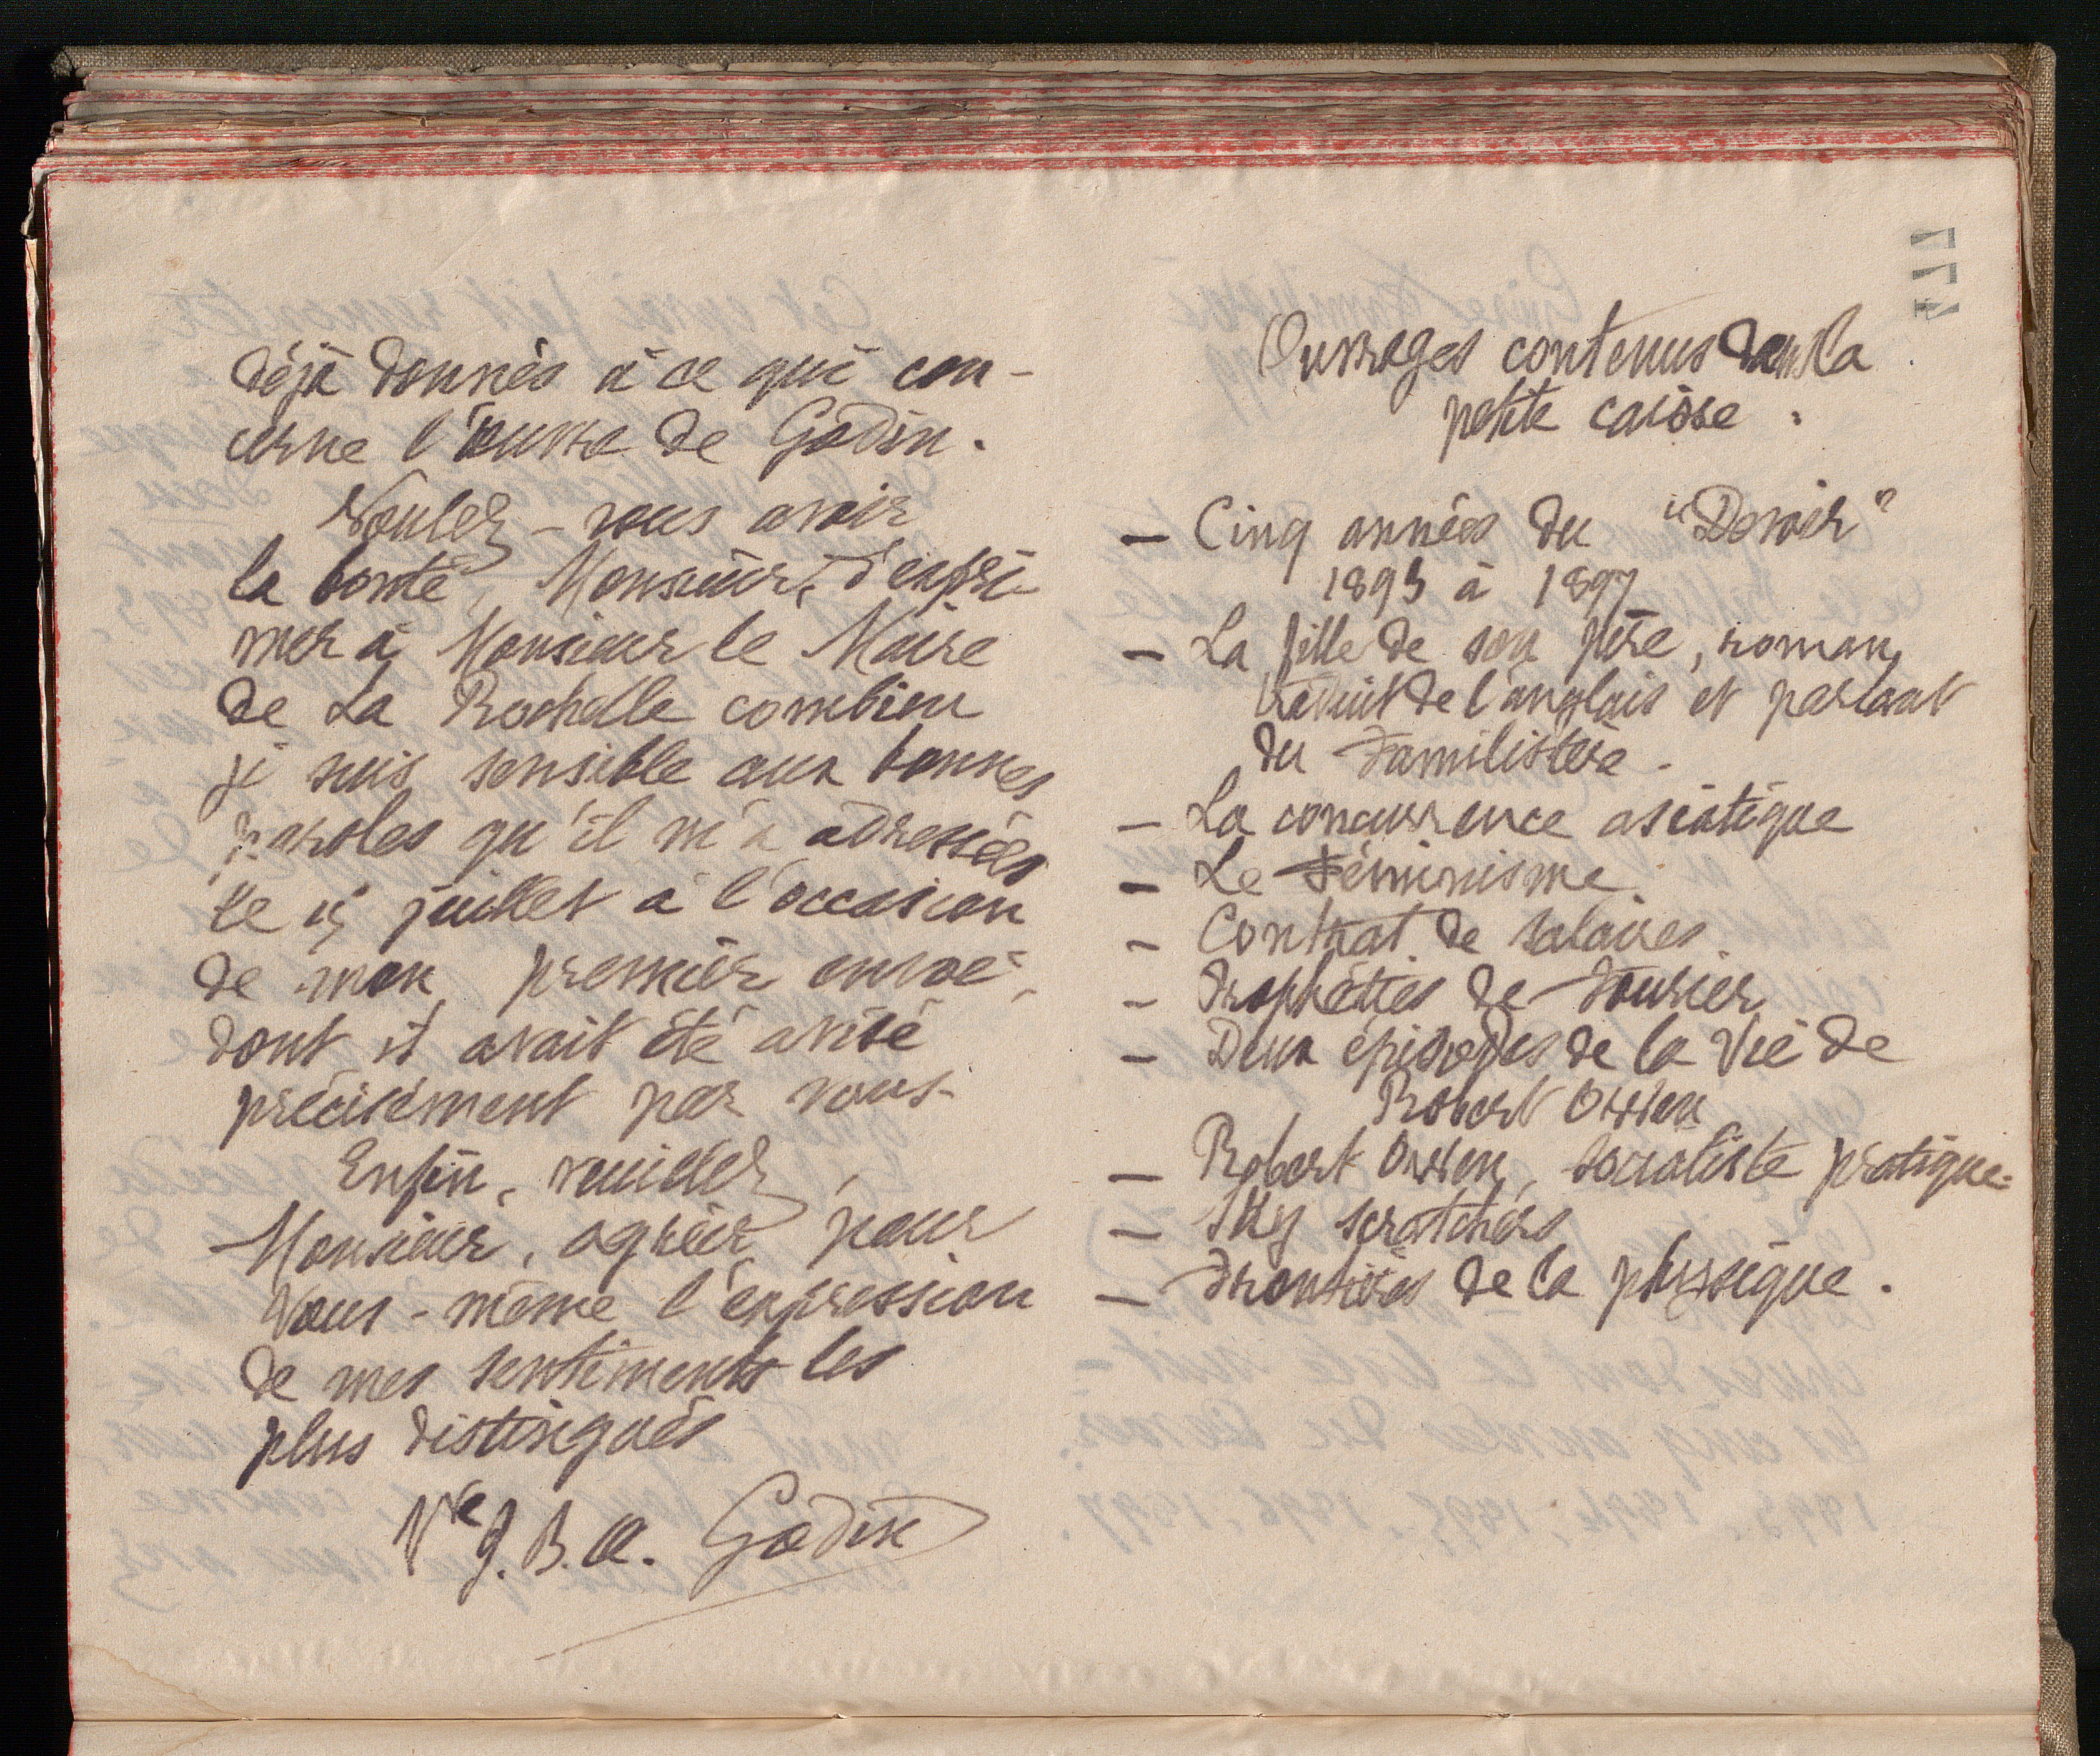 déjà donnés à ce qui con-
cerne l'œuvre de Godin.
Voulez-vous avoir
la bonté, Monsieur, d'expri-
mer à Monsieur le Maire
de La Rochelle combien
je suis sensible aux bonnes
paroles qu'il m'a adressées
le 15 juillet à l'occasion
de mon premier envoi,
dont il avait été avisé
précisément par vous.
Enfin, veuillez,
Monsieur, agréer pour
vous-même l'expression
de mes sentiments les
plus distingués
Vve J. B. A. Godin
177
Ouvrages contenus dans la
petite caisse :
— Cinq années du "Devoir"
1893 à 1897
— La fille de son père, roman
traduit de l'anglais et parlant
du Familistère.
— La concurrence asiatique
— Le Féminisme.
— Contrat de salaires.
— Prophéties de Fourier
— Deux épisodes de la Vie de
Robert Owen
— Robert Owen, socialiste pratique.
— Sky scratchers
— Frontières de la physique.